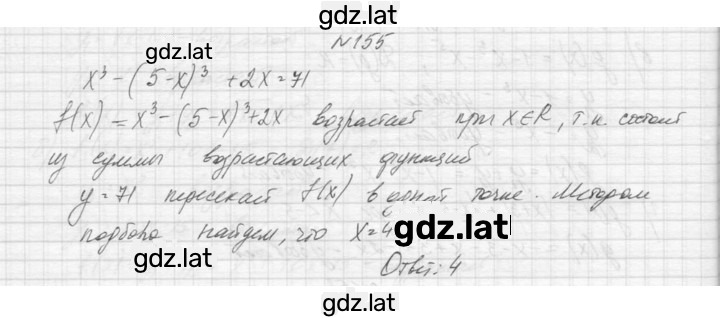 gdz.lat
N155
x³ - (5-x)³ + 2x = 71
f(x) = x³ - (5-x)³ + 2x возрастает при x∈R, т.к. состоит
из суммы возрастающих функций
y = 71 пересекает f(x) в одной точке. Методом
подбора найдем, что x=4
gdz.lat
gdz.lat
Ответ: 4
gdz.lat